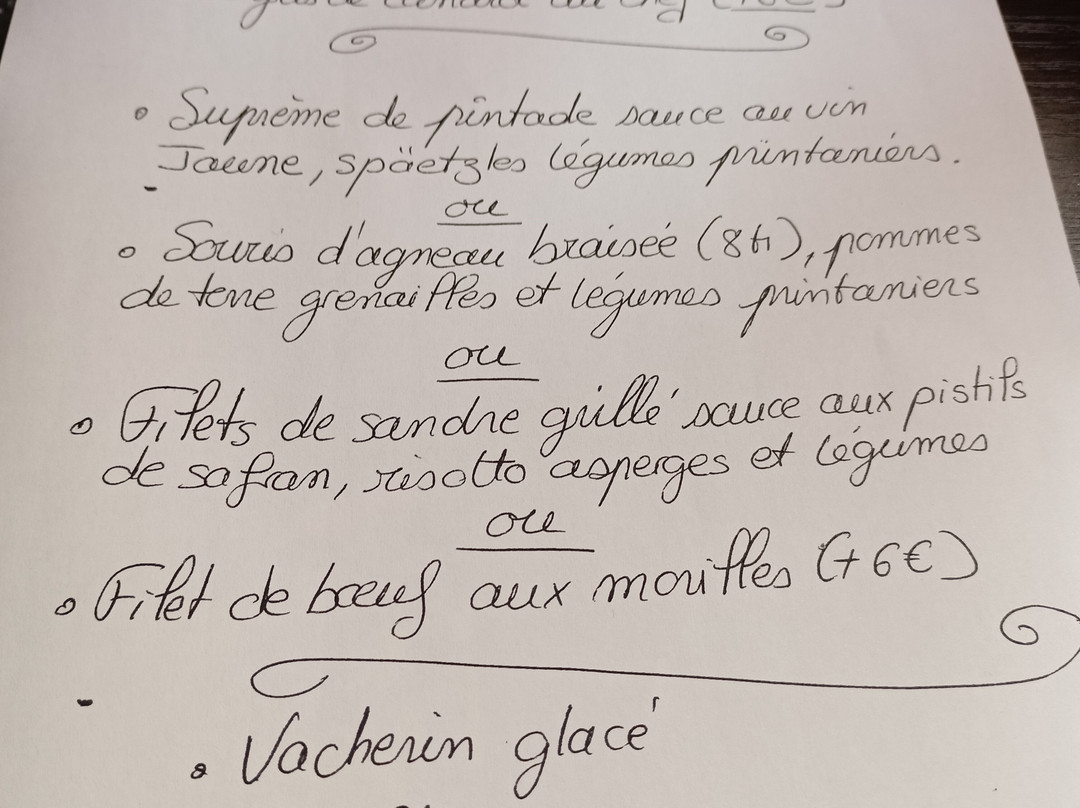 • Suprême de pintade sauce au vin
Jaune, späetzles légumes printaniers.
ou
• Souris d'agneau braisée (8h), pommes
de terre grenailles et légumes printaniers
ou
• Filets de sandre grillé sauce aux pistils
de safran, risotto asperges et légumes
ou
• Filet de bœuf aux morilles (+6€)
• Vacherin glacé